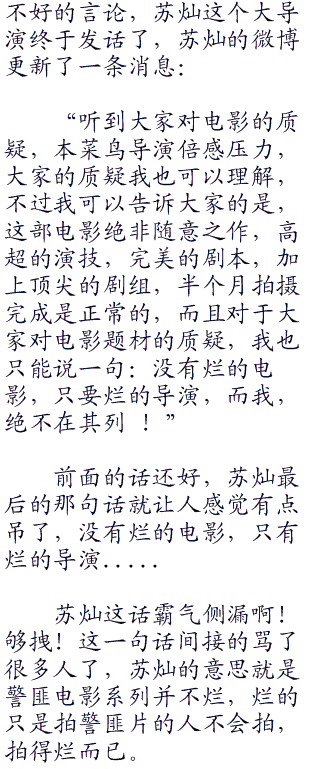 不好的言论，苏灿这个大导
演终于发话了，苏灿的微博
更新了一条消息：
“听到大家对电影的质
疑，本菜鸟导演倍感压力，
大家的质疑我也可以理解，
不过我可以告诉大家的是，
这部电影绝非随意之作，高
超的演技，完美的剧本，加
上顶尖的剧组，半个月拍摄
完成是正常的，而且对于大
家对电影题材的质疑，我也
只能说一句：没有烂的电
影，只要烂的导演，而我，
绝不在其列 ！”
前面的话还好，苏灿最
后的那句话就让人感觉有点
吊了，没有烂的电影，只有
烂的导演.....
苏灿这话霸气侧漏啊！
够拽！这一句话间接的骂了
很多人了，苏灿的意思就是
警匪电影系列并不烂，烂的
只是拍警匪片的人不会拍，
拍得烂而已。